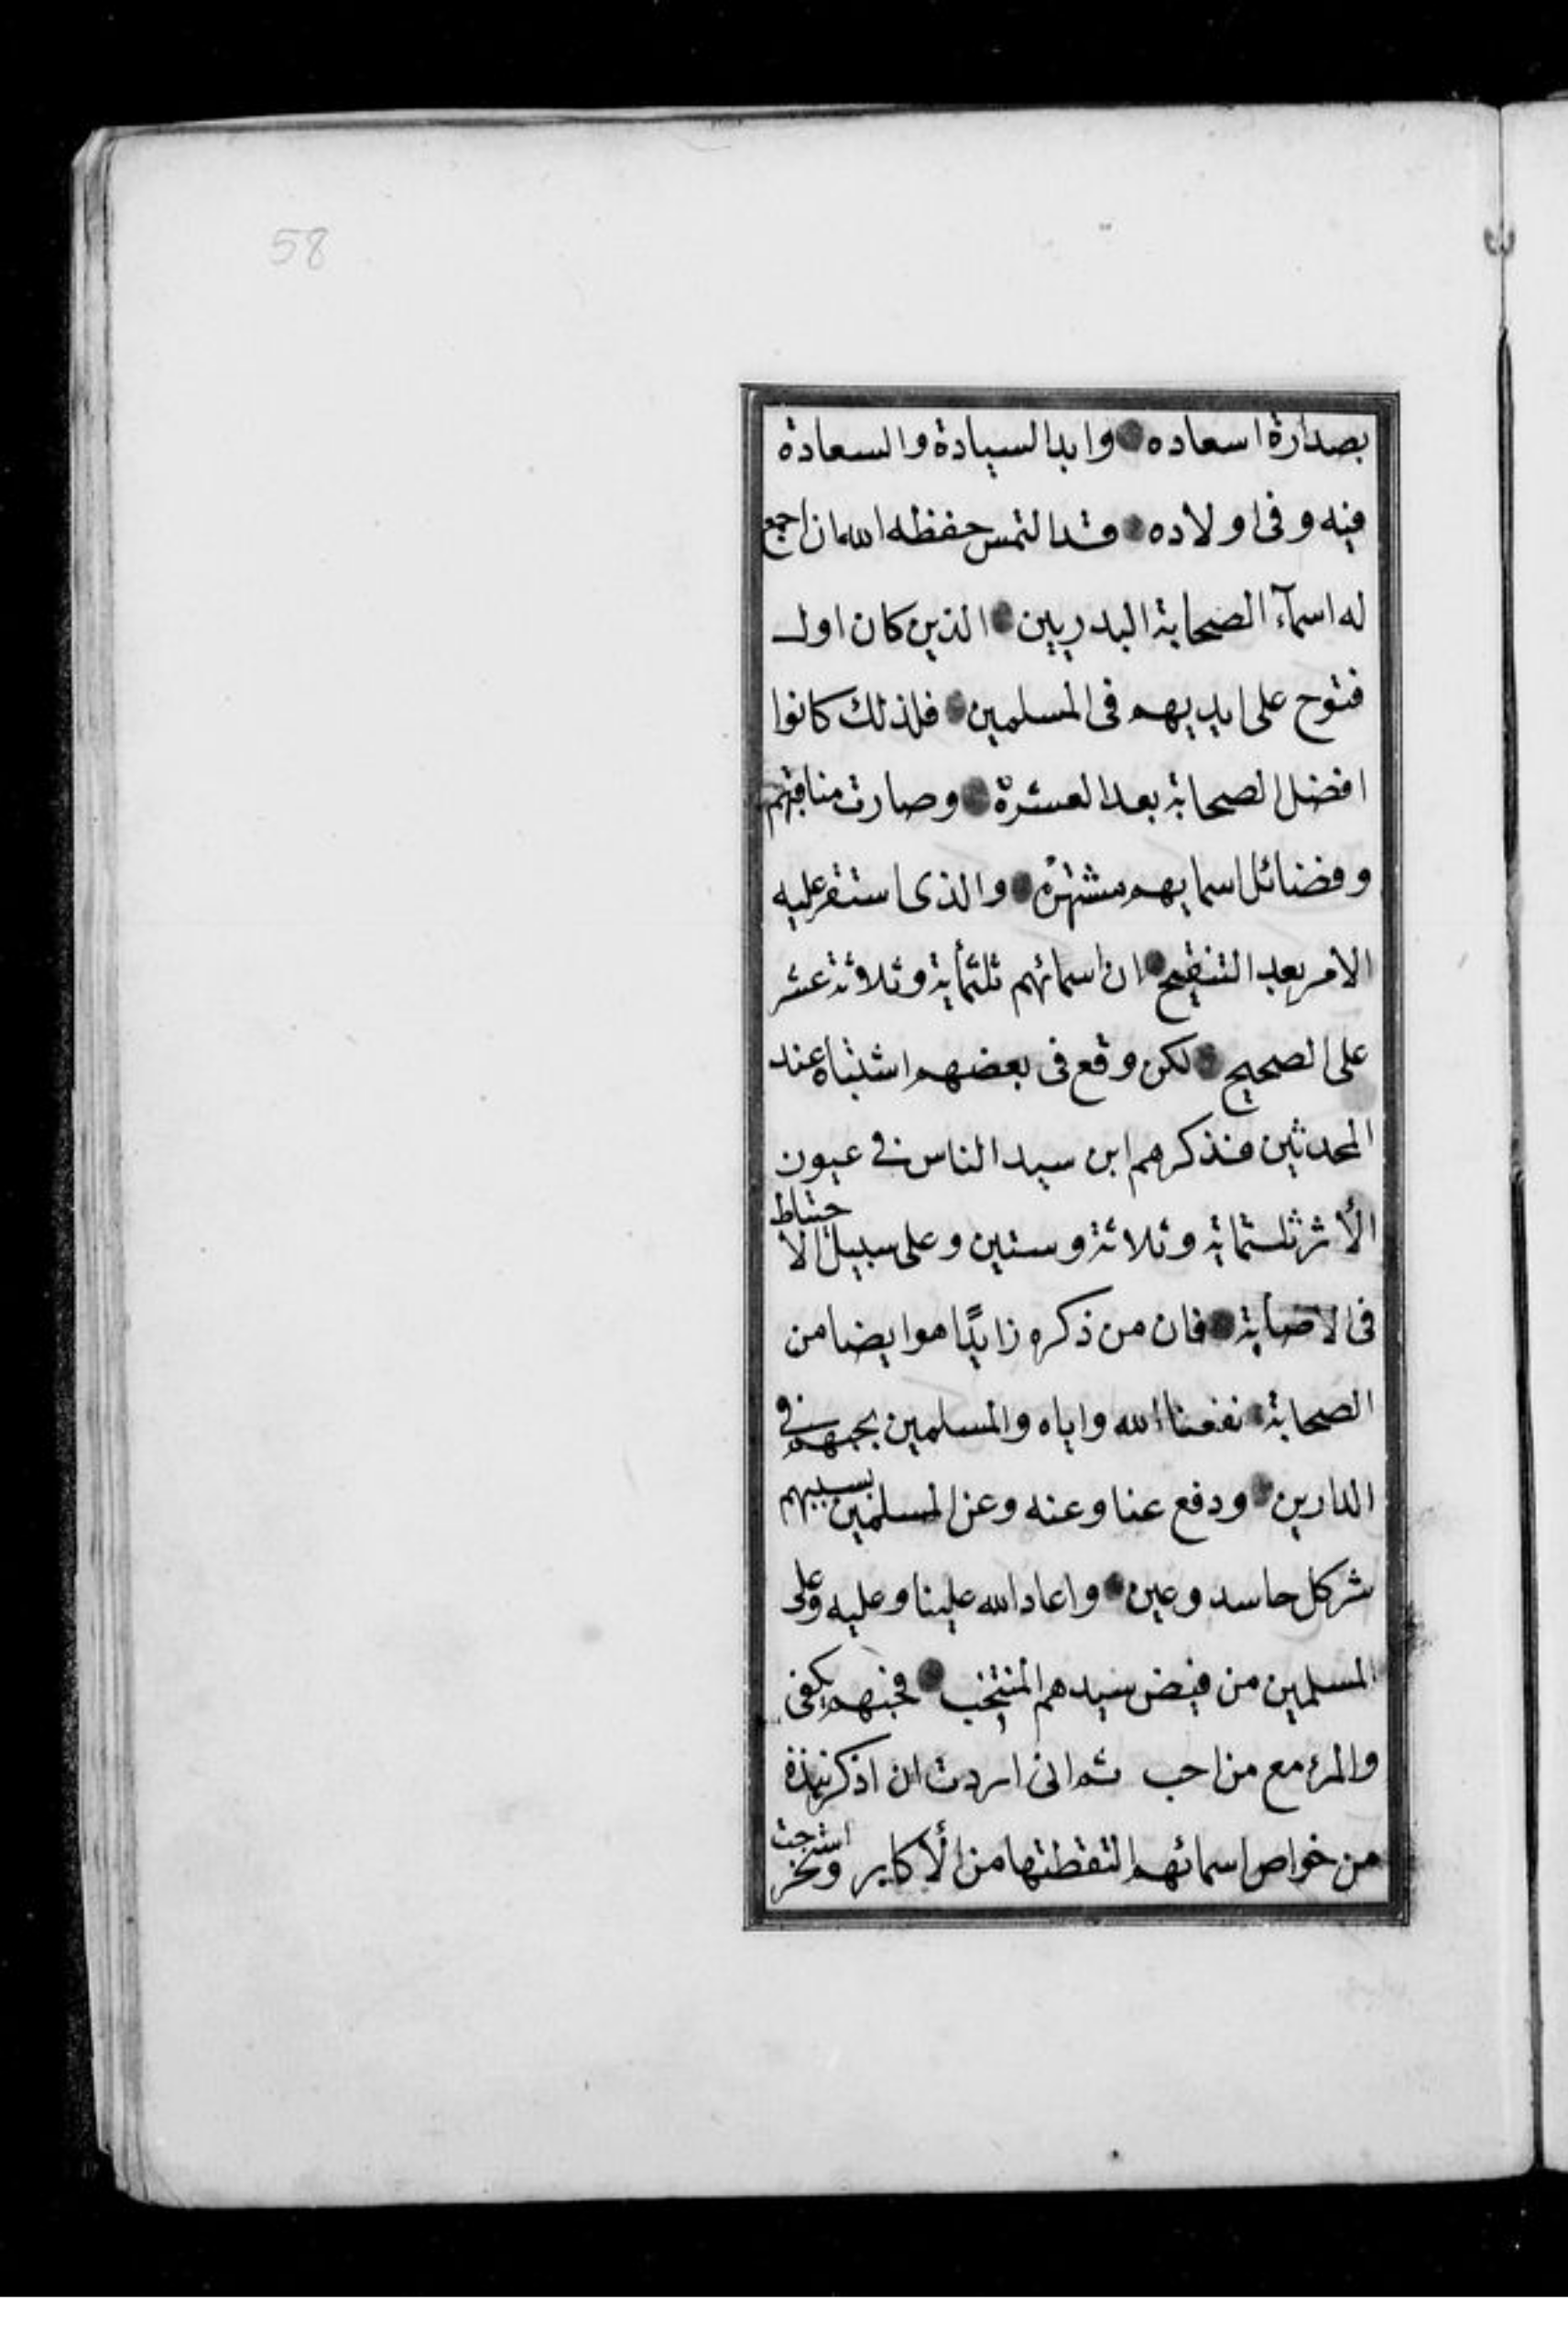 58
بصدارة اسعاده وابد السيادة والسعادة
فيه وفى اولاده قد التمس حفظه الله ان اجمع
له اسمآء الصحابة البدريين الذين كان اول
فتوح على ايديهم فى المسلمين فلذلك كانوا
افضل الصحابة بعد العشرة وصارت مناقبهم
وفضائل اسمايهم مشتهرة والذى استقر عليه
الامر بعد التنقيح ان اسمائهم ثلثمأية وثلاثة عشر
على الصحيح لكن وقع فى بعضهم اشتباه عند
المحدثين فذكرهم ابن سيد الناس فى عيون
الأثر ثلستماية وثلاثة وستين وعلى سبيل الاحتياط
فى الاصابة فان من ذكره زايدًا هو ايضا من
الصحابة نفعنا الله واياه والمسلمين بحبهم فى
الدارين ودفع عنا وعنه وعن المسلمين بسببهم
شر كل حاسد وعين واعاد الله علينا وعليه وعلى
المسلمين من فيض سيدهم المنتخب فحبهم يكفى
والمرء مع من احب ثم انى اردت ان اذكر نبذة
من خواص اسمائهم التقطتها من الأكابر واستخرجت